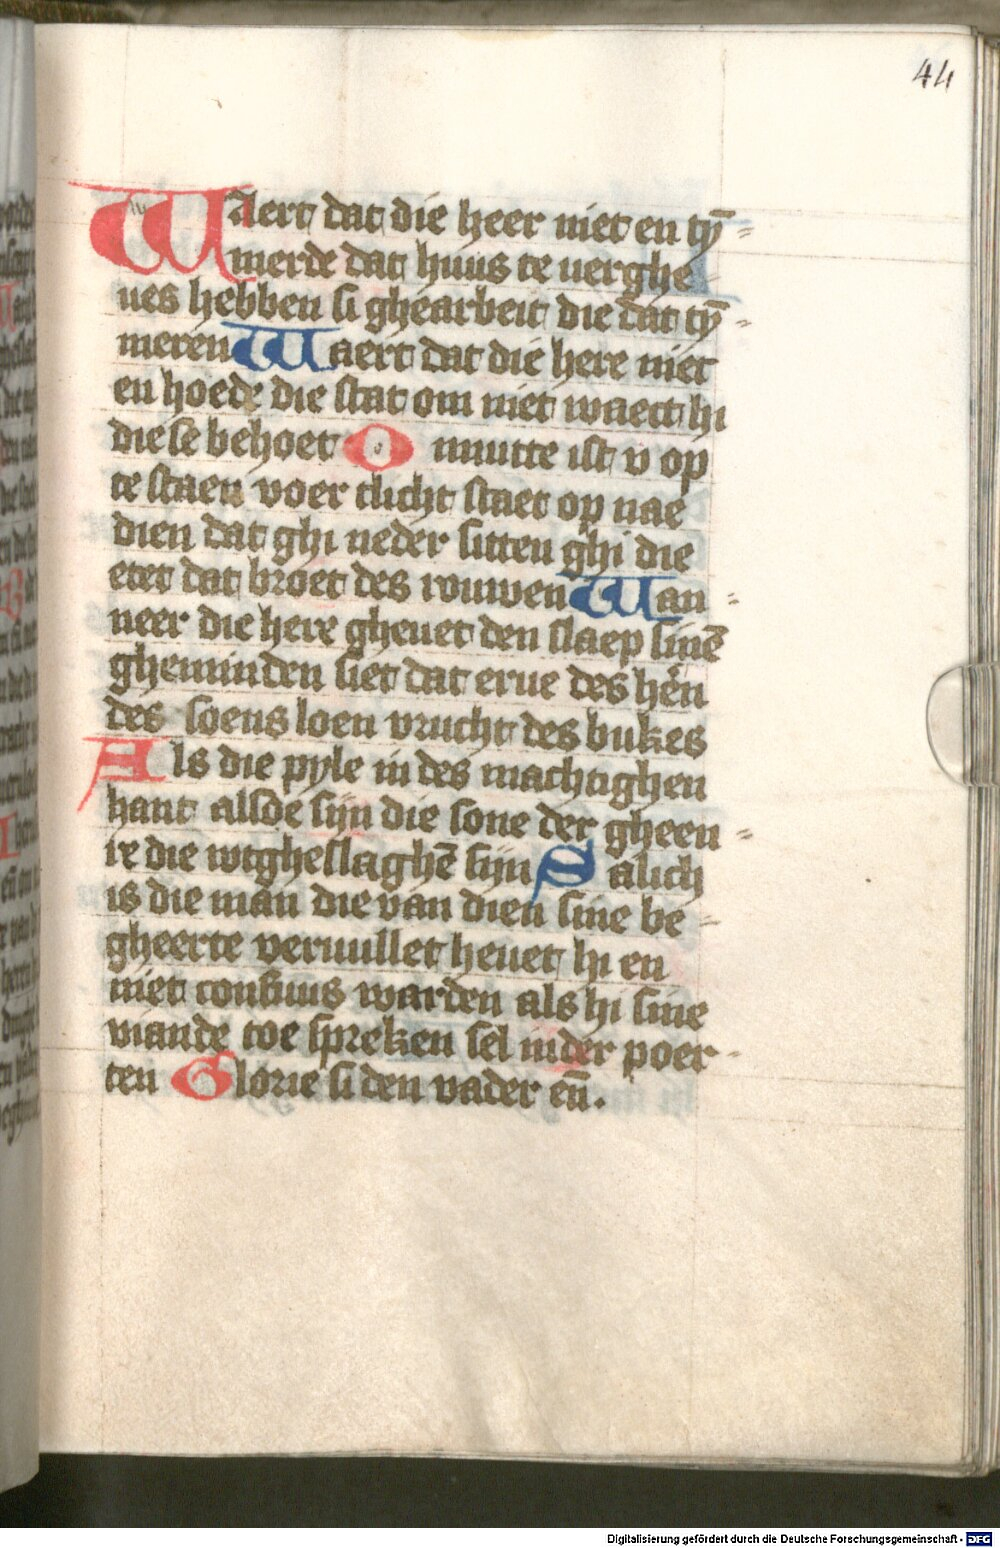 44
Waert dat die heer niet en tȳ⸗
merde dat huus te uerghe
ues hebben si ghearbeit die dat tȳ⸗
meren Waert dat die here niet
en hoede die stat om niet waect hi
diese behoet O nnutte ist v op
te staen voer tlicht staet op nae
dien dat ghi neder sitten ghi die
etet dat broet des rouwen Wan⸗
neer die here gheuet den slaep sinē
gheminden siet dat erue des hēn
des soens loen vrucht des bukes
Als die pyle in des machtighen
hant alsoe sijn die sone der gheen⸗
re die wtgheslaghē sijn Salich
is die man die van dien sine be⸗
gheerte veruullet heuet hi en
niet confuus warden als hi sine
viande toe spreken sel in der poer⸗
ten Glorie si den vader eñ.
Digitalisierung gefördert durch die Deutsche Forschungsgemeinschaft - DFG